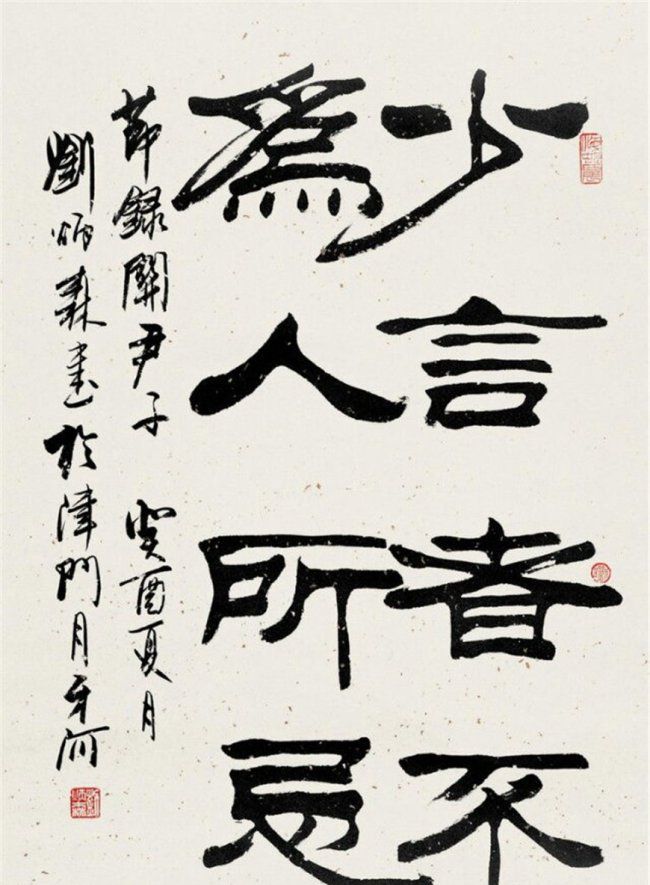 少言者不
為人所忌
節録關尹子 癸酉夏月
劉炳森書於津門月牙河